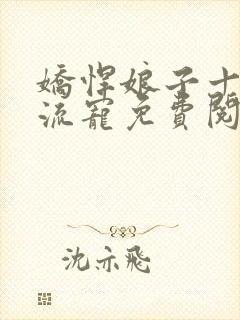 嬌悍娘子十
流寵免費閱
沈亦飛